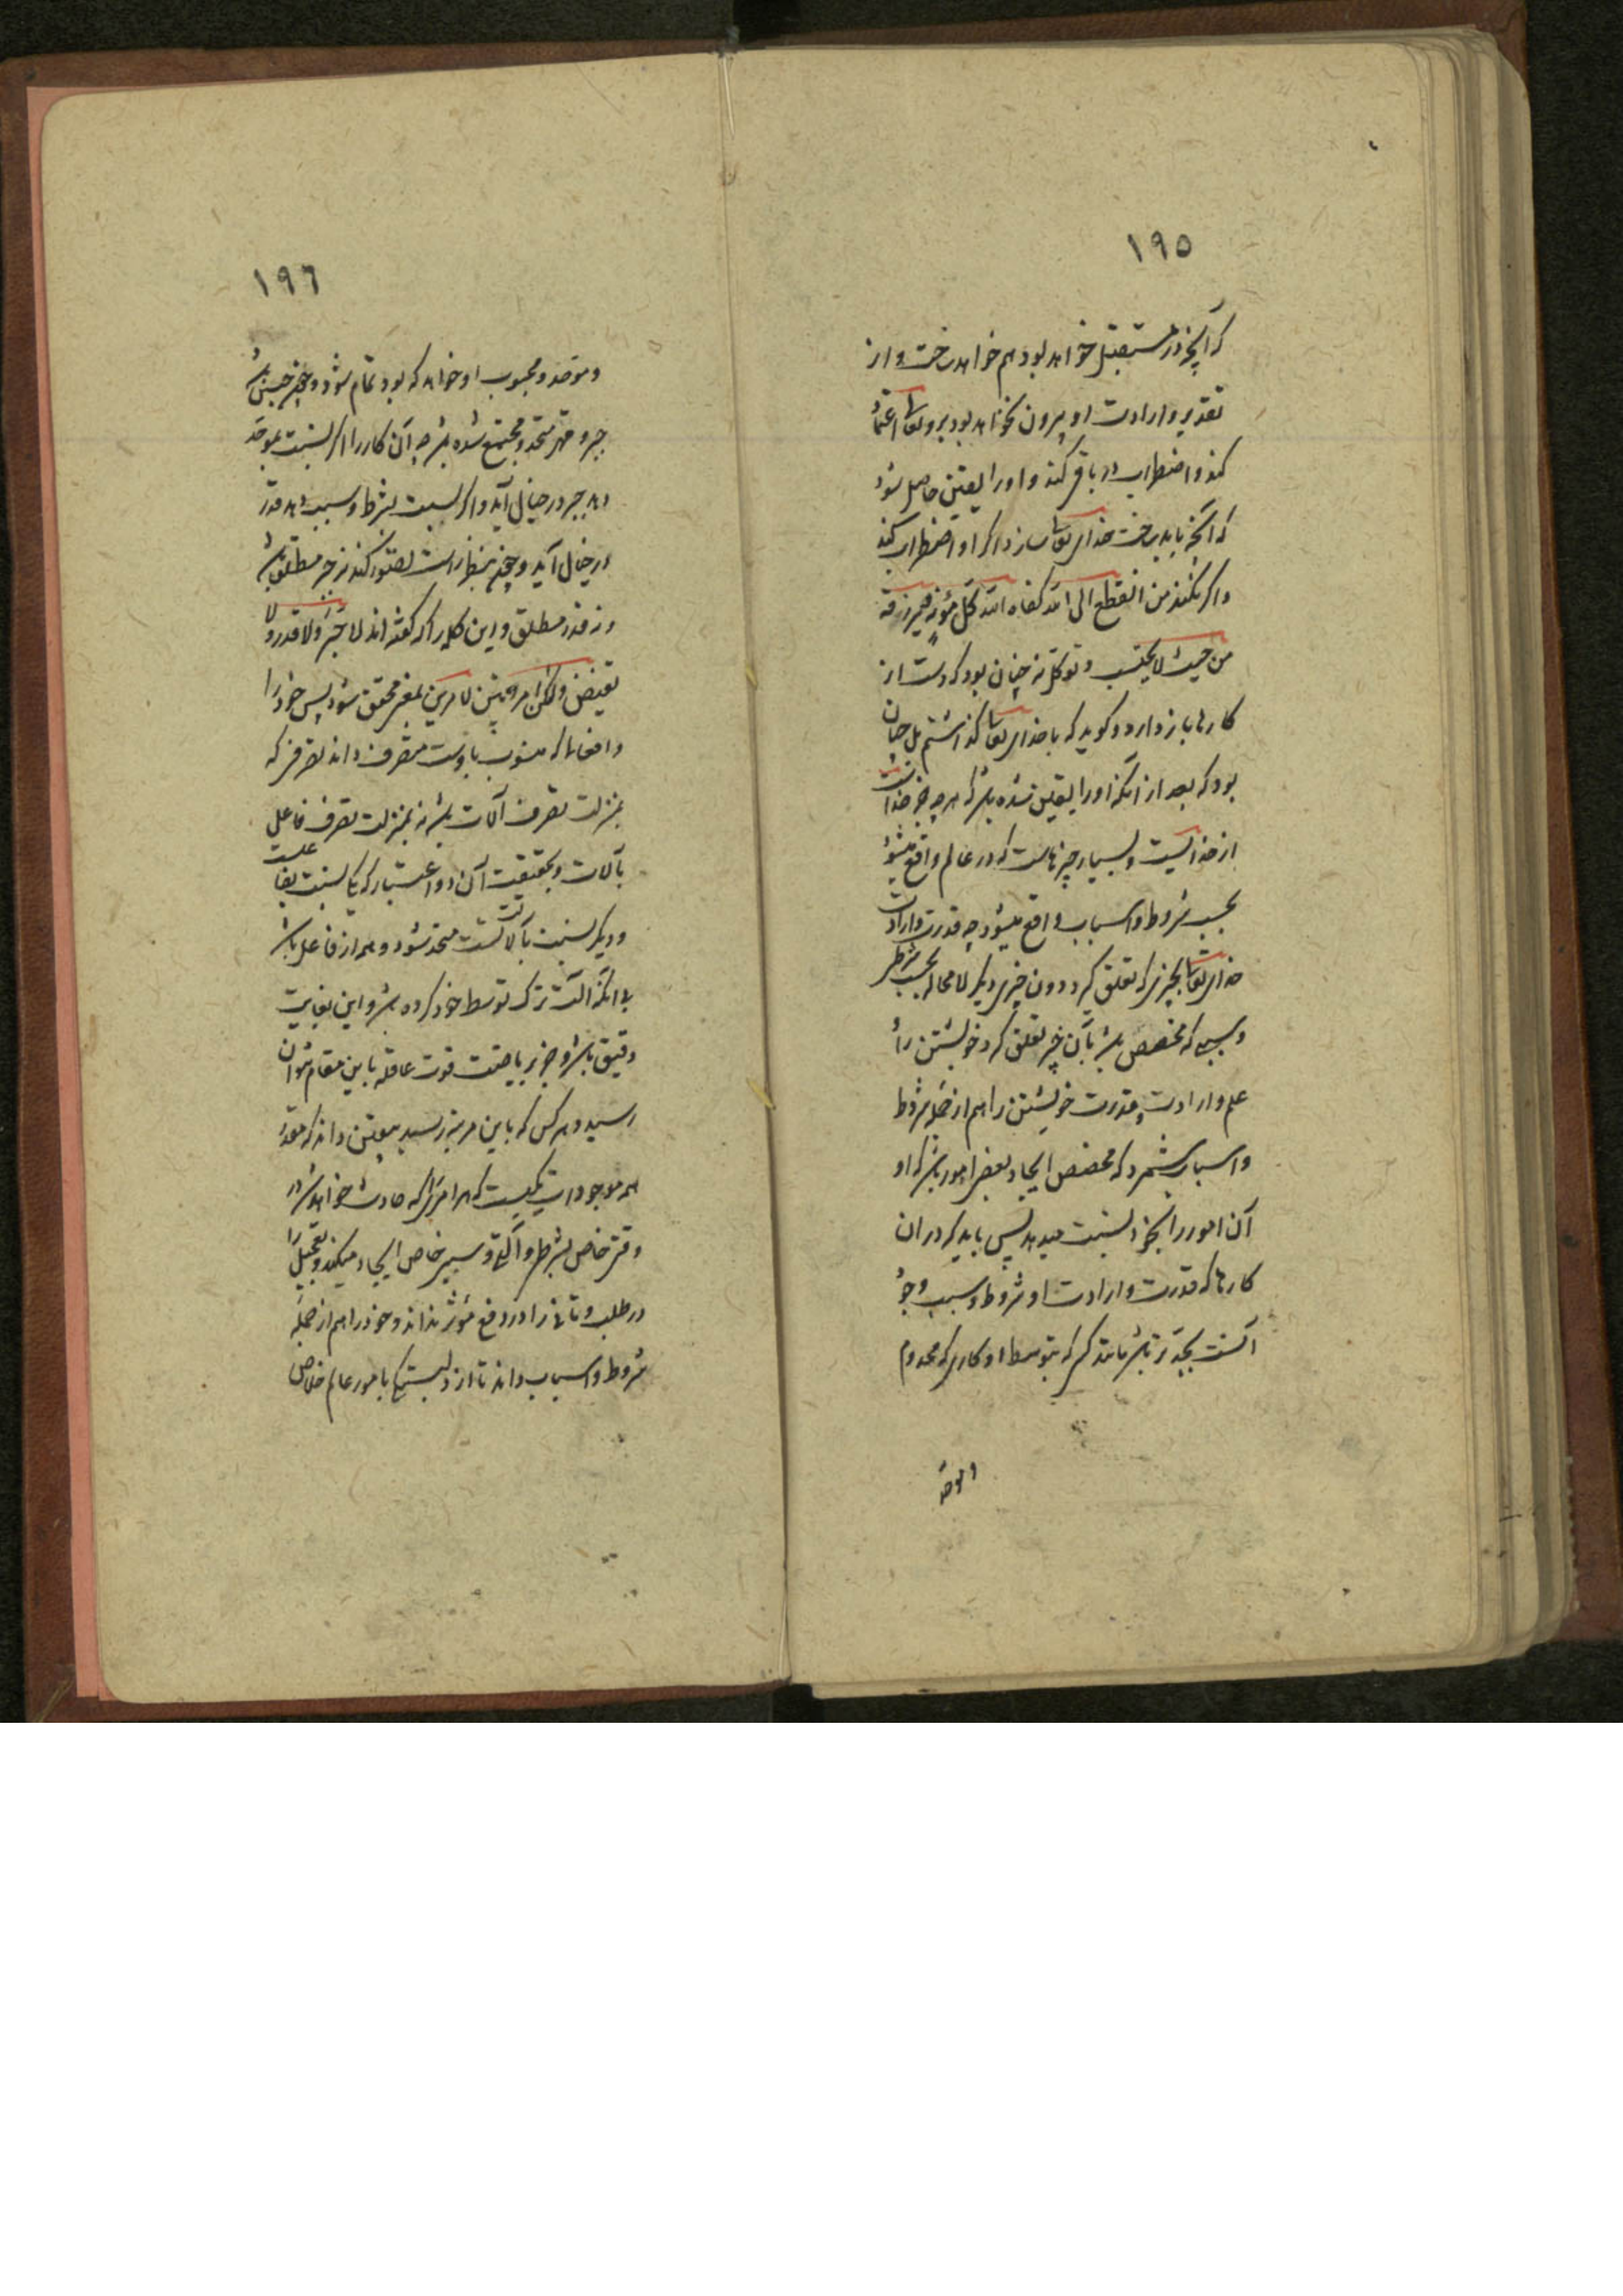 ۱۹۵
که آنچه در مستقبل خواهد بود هم خواهد ساخت و از
تقدیر و ارادت او بیرون نخواهد بود بر وی تعالی اعتماد
کند و اضطراب در باقی کند و او را یقین حاصل شود
که آنچه باید ساخت خدای تعالی سازد اگر او اضطراب کند
و اگر نکند من انقطع الی الله کفاه الله کل مؤنة و یرزقه
من حیث لا یحتسب و توکل نه چنان بود که دست از
کارها باز دارد و گوید که با خدای تعالی گذاشتم بل چنان
بود که بعد از آنکه او را یقین شده باشد که هر چه جز خداست
از خداست و بسیار چیزهاست که در عالم واقع میشود
بحسب شروط و اسباب واقع میشود چه قدرت و ارادت
خدای تعالی بچیزی که تعلق گیرد دون چیزی دیگر لا محاله بحسب شرطی
و سببی که مخصص باشد بآن چیز تعلق گیرد خویشتن را و
علم و ارادت و قدرت خویشتن را هم از جمله شروط
و اسباب شمرد که مخصص ایجاد بعضی امور باشد که او
آن امور را بخود نسبت میدهد پس باید که در آن
کارها که قدرت و ارادت او شروط و سبب وجود
آنست بجدتر باشد مانند کسی که بتوسط او کاری که مخدوم
و موجد
۱۹۶
و موجد و محبوب او خواهد که بود تمام شود و چون چنین باشد
جبر و قدر متحد و مجتمع شده باشد چه آن کار را اگر نسبت بموجد
دهد جبر در خیال آید و اگر نسبت بشرط و سبب دهد قدر
در خیال آید و چون بنظر راست تصور کند نه جبر مطلق باشد
و نه قدر مطلق و این کلمه را که گفته‌اند لا جبر و لا قدر و لا
تفویض و لکن امر بین الامرین بمعنی محقق شود پس خود را
در افعالی که منسوب باوست متصرف داند تصرفی که
بمنزلت تصرف آلات باشد نه بمنزلت تصرف فاعل
بآلات و بحقیقت آن دو اعتبار که یکی نسبت بفاعلست
و دیگر نسبت بآلتست متحد شود و همه از فاعل باشد
بی آنکه آلت ترک توسط خود کرده باشد و این بغایت
دقیق باشد و جز بریاضت قوت عاقله باین مقام نتوان
رسید و هر کس که باین مرتبه رسید بیقین داند که مقدر
همه موجودات یکیست که هر امری را که حادث خواهد شد در
وقتی خاص بشرط و آلتی و سببی خاص ایجاد میکند و تعجیل را
در طلب و تأنی را در دفع مؤثر نداند و خود را هم از جمله
شروط و اسباب داند تا از دلبستگی بامور عالم خلاص